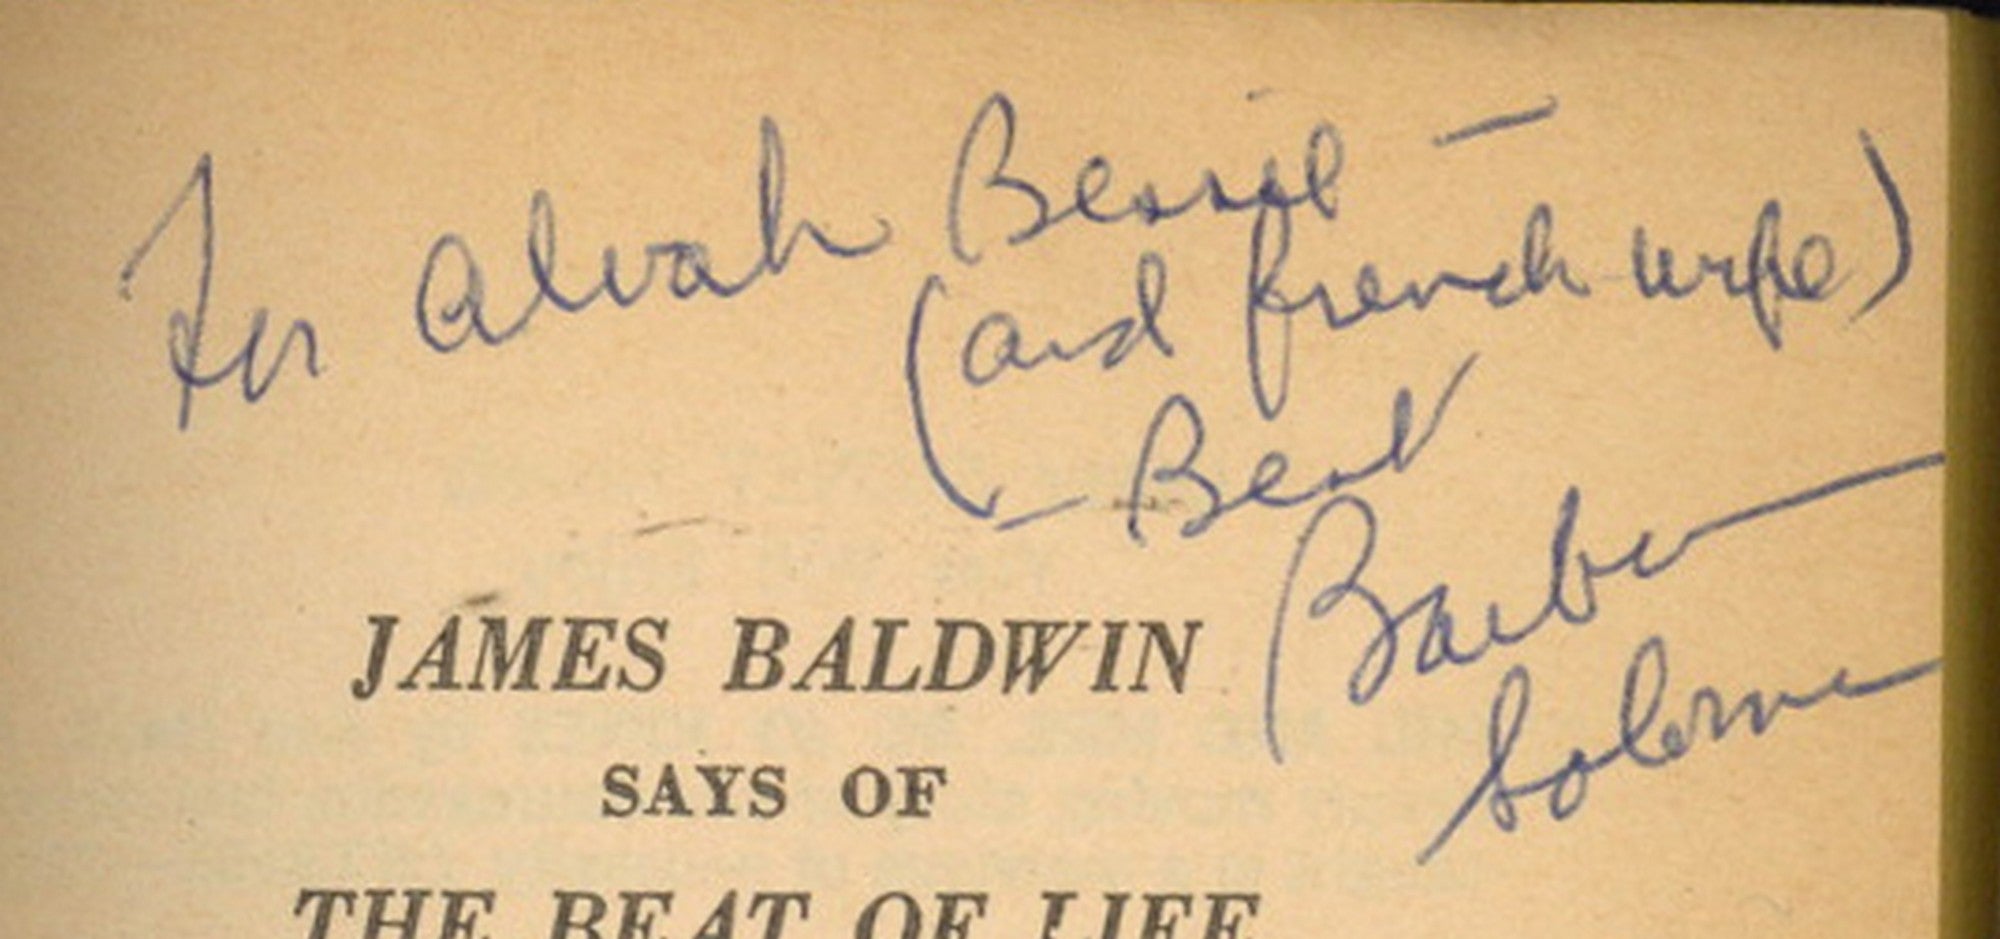 For Alvah Bessie —
(and french wife)
— Best
Barbara
Solomon
JAMES BALDWIN
SAYS OF
THE BEAT OF LIFE